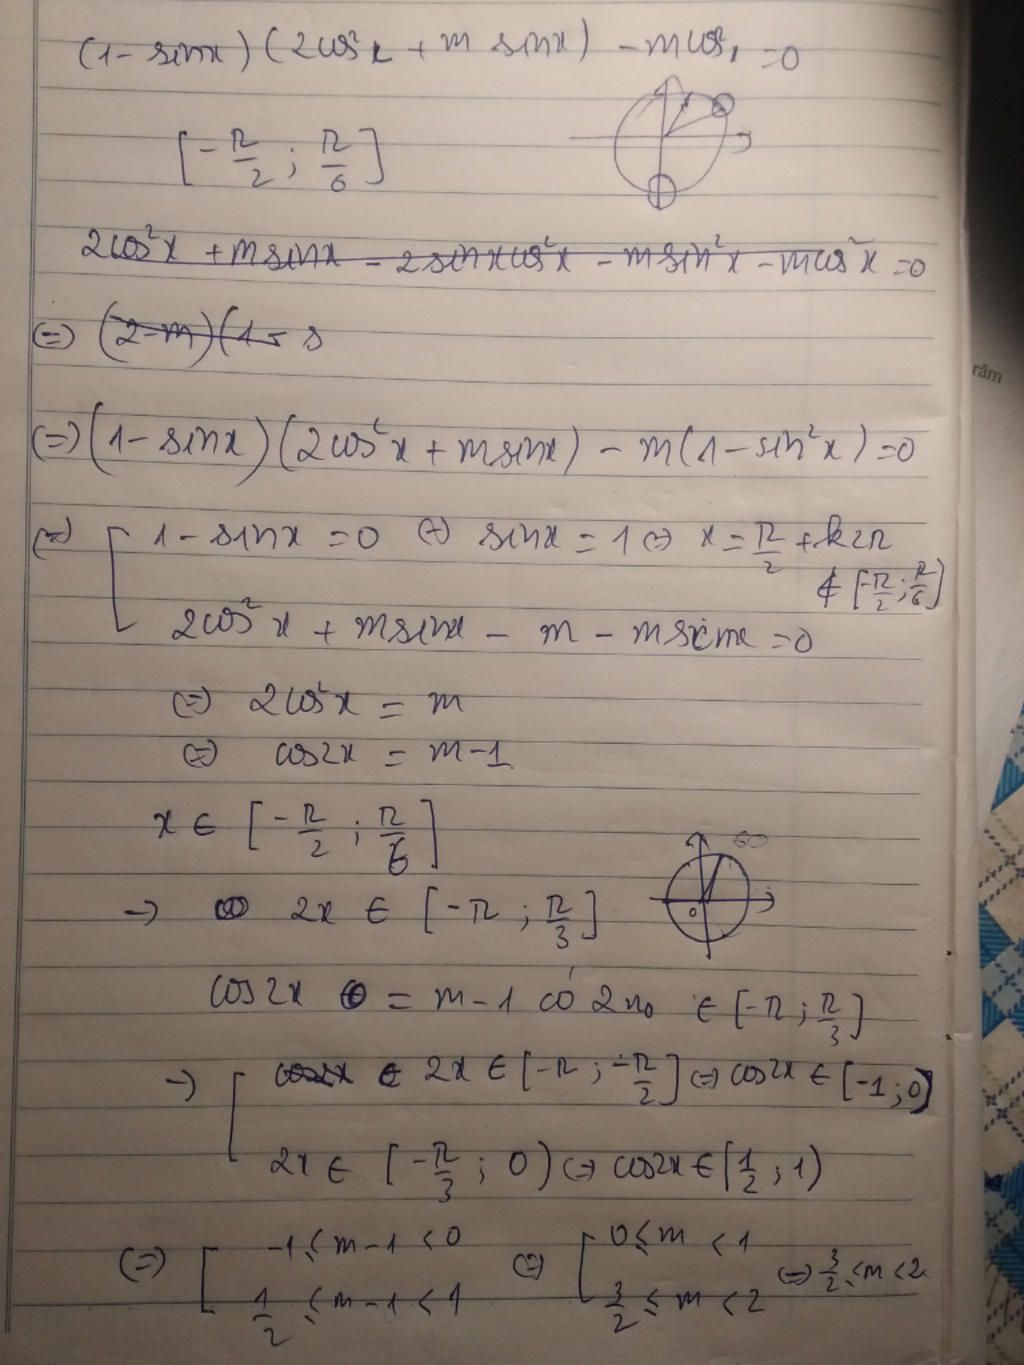 (1 - sinx)(2cos²x + m sinx) - mcos²x = 0
[-π/2 ; π/6]
2cos²x + msinx - 2sinxcos²x - msin²x - mcos²x = 0
(=) (2-m)(1 - s
(=) (1 - sinx)(2cos²x + msinx) - m(1 - sin²x) = 0
(=) [ 1 - sinx = 0 (=) sinx = 1 (=) x = π/2 + k2π
∉ [-π/2 ; π/6]
2cos²x + msinx - m - msinx = 0
(=) 2cos²x = m
(=) cos2x = m - 1
x ∈ [-π/2 ; π/6]
60
→ 2x ∈ [-π ; π/3]
0
cos2x = m - 1 có 2 no ∈ [-π ; π/3]
→ [ cos2x ∈ 2x ∈ [-π ; -π/2] (=) cos2x ∈ [-1 ; 0)
2x ∈ [-π/3 ; 0) (=) cos2x ∈ [1/2 ; 1)
(=) [ -1 ≤ m - 1 < 0 (=) [ 0 ≤ m < 1
1/2 ≤ m - 1 < 1 3/2 ≤ m < 2 (=) 3/2 ≤ m < 2
răm